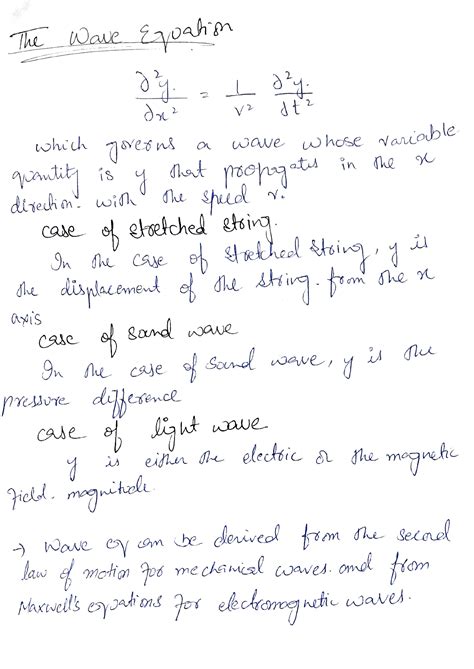 The Wave Equation
∂²y/∂x² = 1/v² ∂²y/∂t²
which governs a wave whose variable
quantity is y that propagates in the x
direction. with the speed v.
case of stretched string.
In the case of stretched string, y is
the displacement of the string. from the x
axis
case of sound wave
In the case of sound wave, y is the
pressure difference
case of light wave
y is either the electric or the magnetic
field. magnitude.
→ Wave eq can be derived from the second
law of motion for mechanical waves. and from
Maxwell's equations for electromagnetic waves.